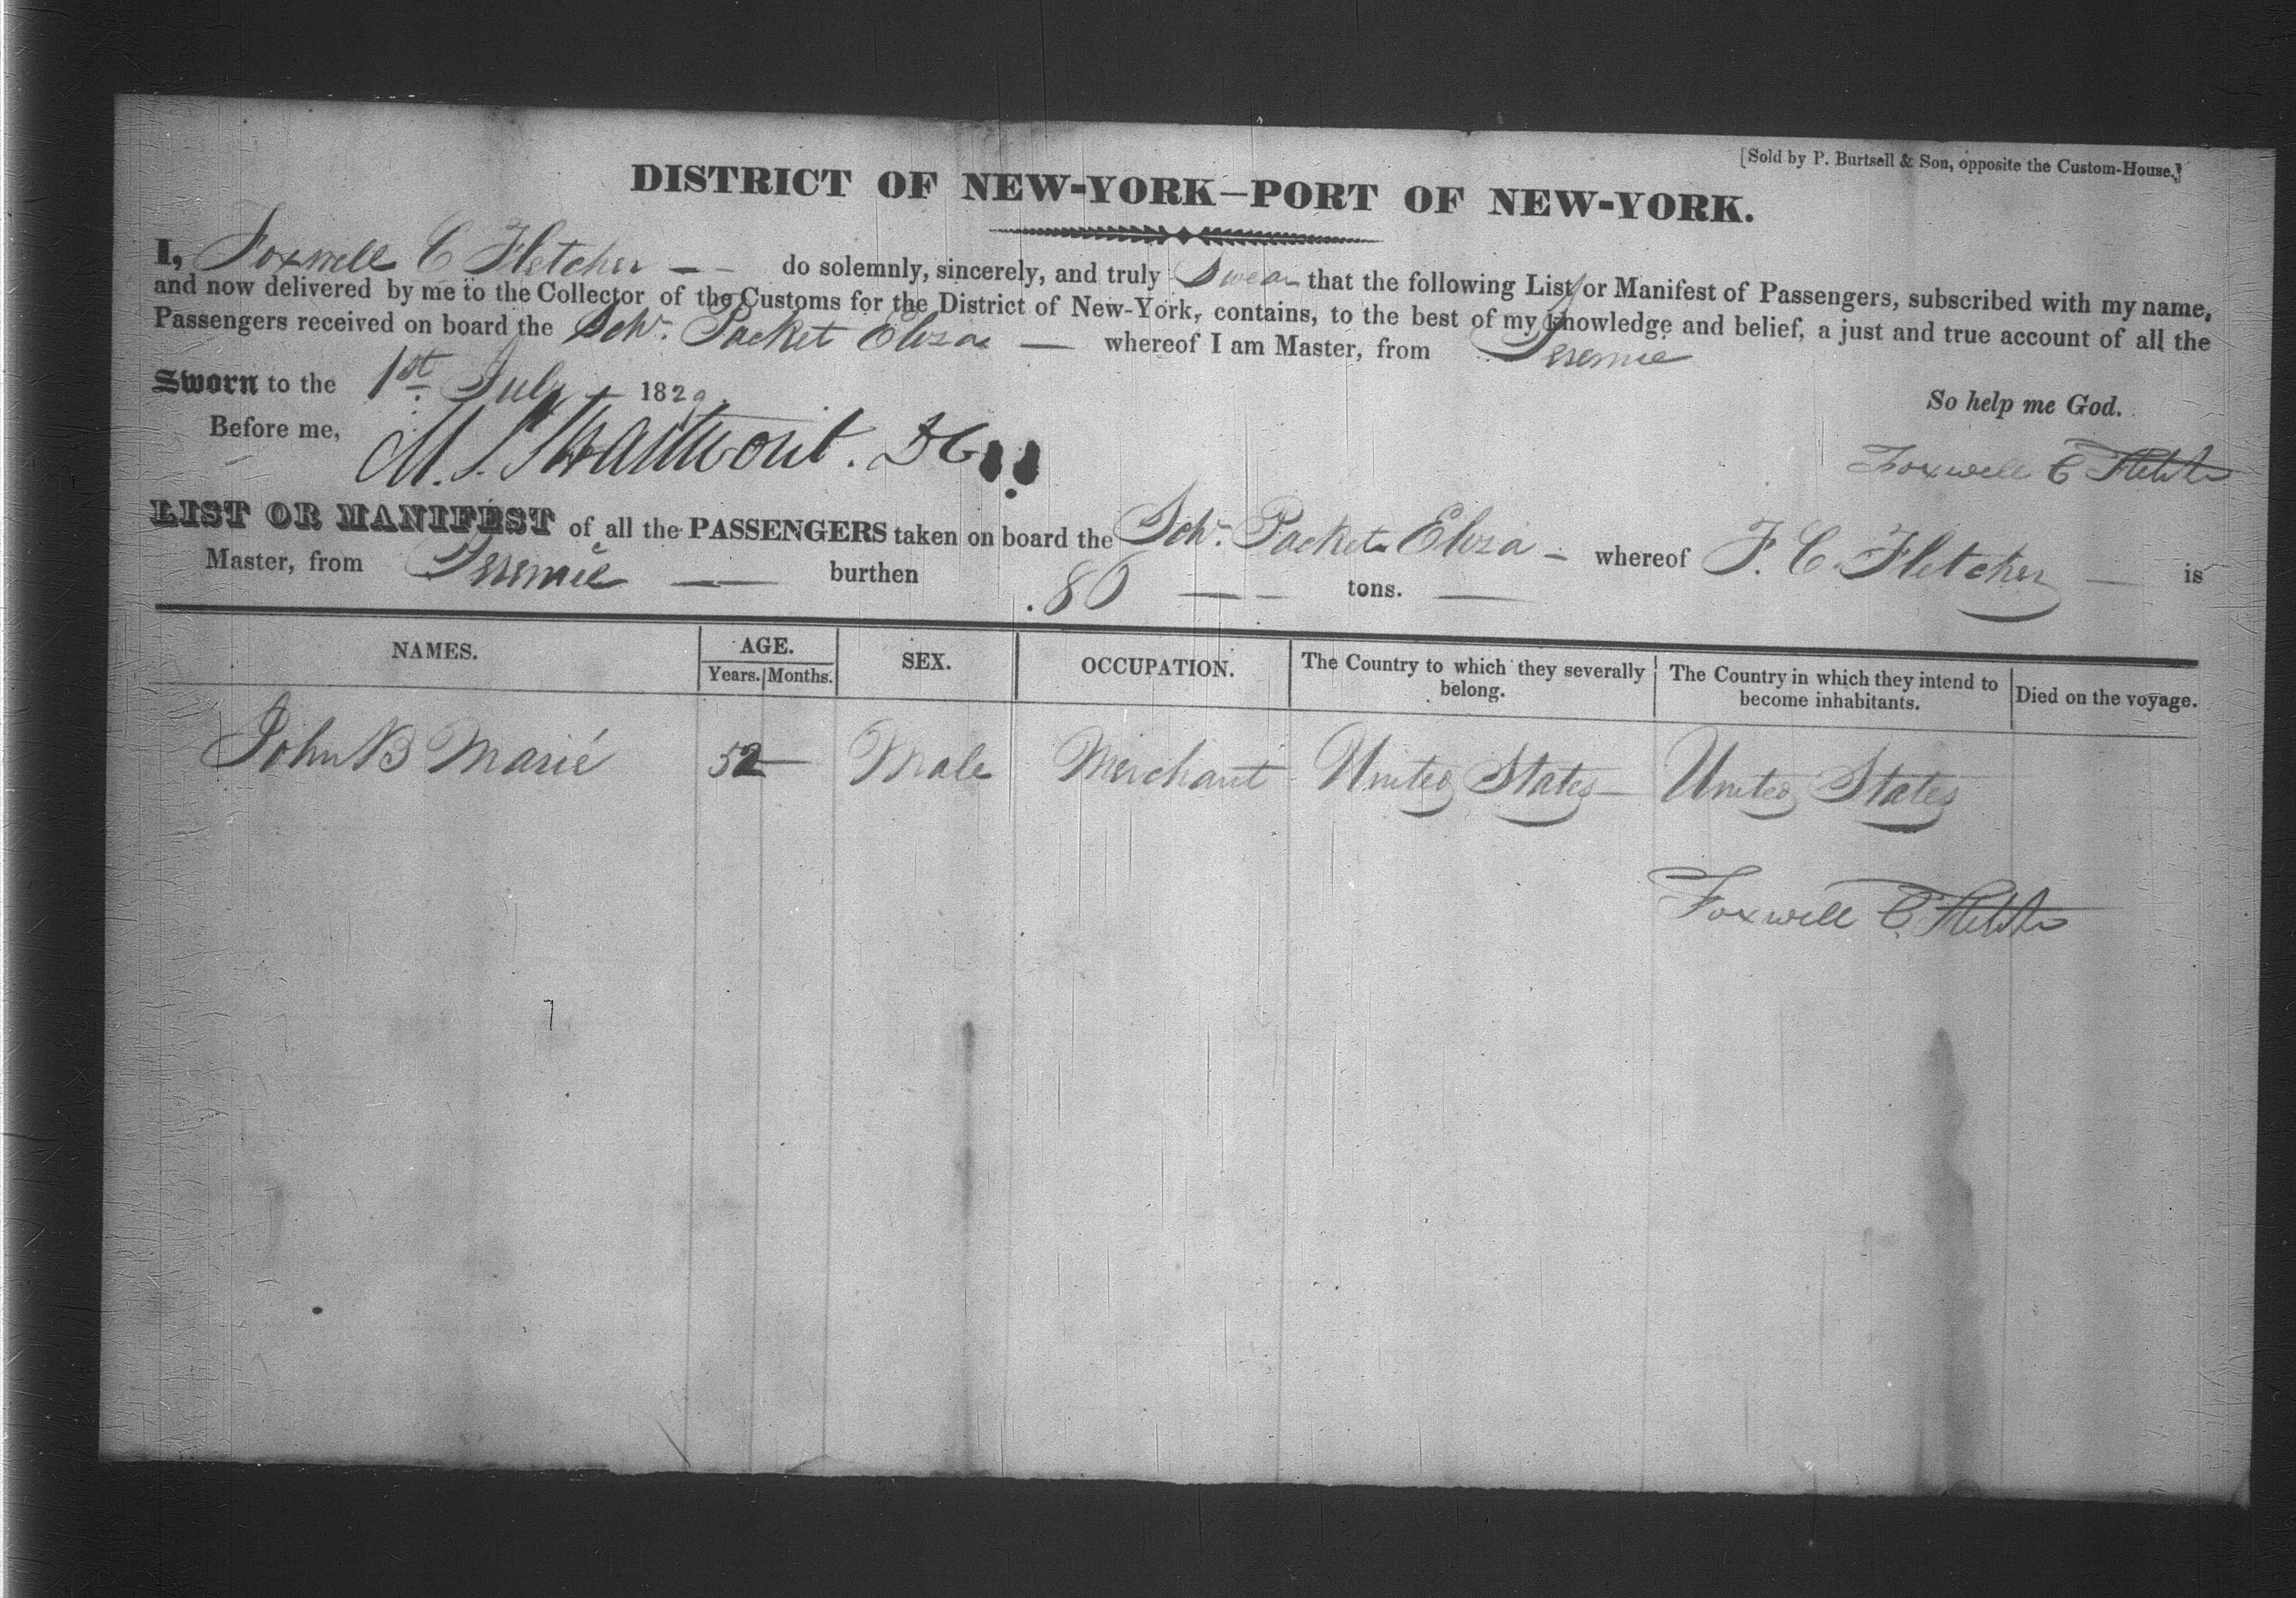 [Sold by P. Burtsell & Son, opposite the Custom-House.]
DISTRICT OF NEW-YORK—PORT OF NEW-YORK.
I, Foxwell C Fletcher — – do solemnly, sincerely, and truly Swear that the following List or Manifest of Passengers, subscribed with my name,
and now delivered by me to the Collector of the Customs for the District of New-York, contains, to the best of my knowledge and belief, a just and true account of all the
Passengers received on board the Schr. Packet Eliza — whereof I am Master, from Jeremie
Sworn to the 1st July 1829.
So help me God.
Before me, M. Swartwout. DC
Foxwell C Fletcher
LIST OR MANIFEST of all the PASSENGERS taken on board the Schr. Packet Eliza – whereof F. C. Fletcher — is
Master, from Jeremie — burthen 86 — – tons. —
NAMES. AGE. SEX. OCCUPATION. The Country to which they severally belong. The Country in which they intend to become inhabitants. Died on the voyage.
Years. Months.
John B Marié 52 — Male Merchant United States — United States
Foxwell C. Fletcher